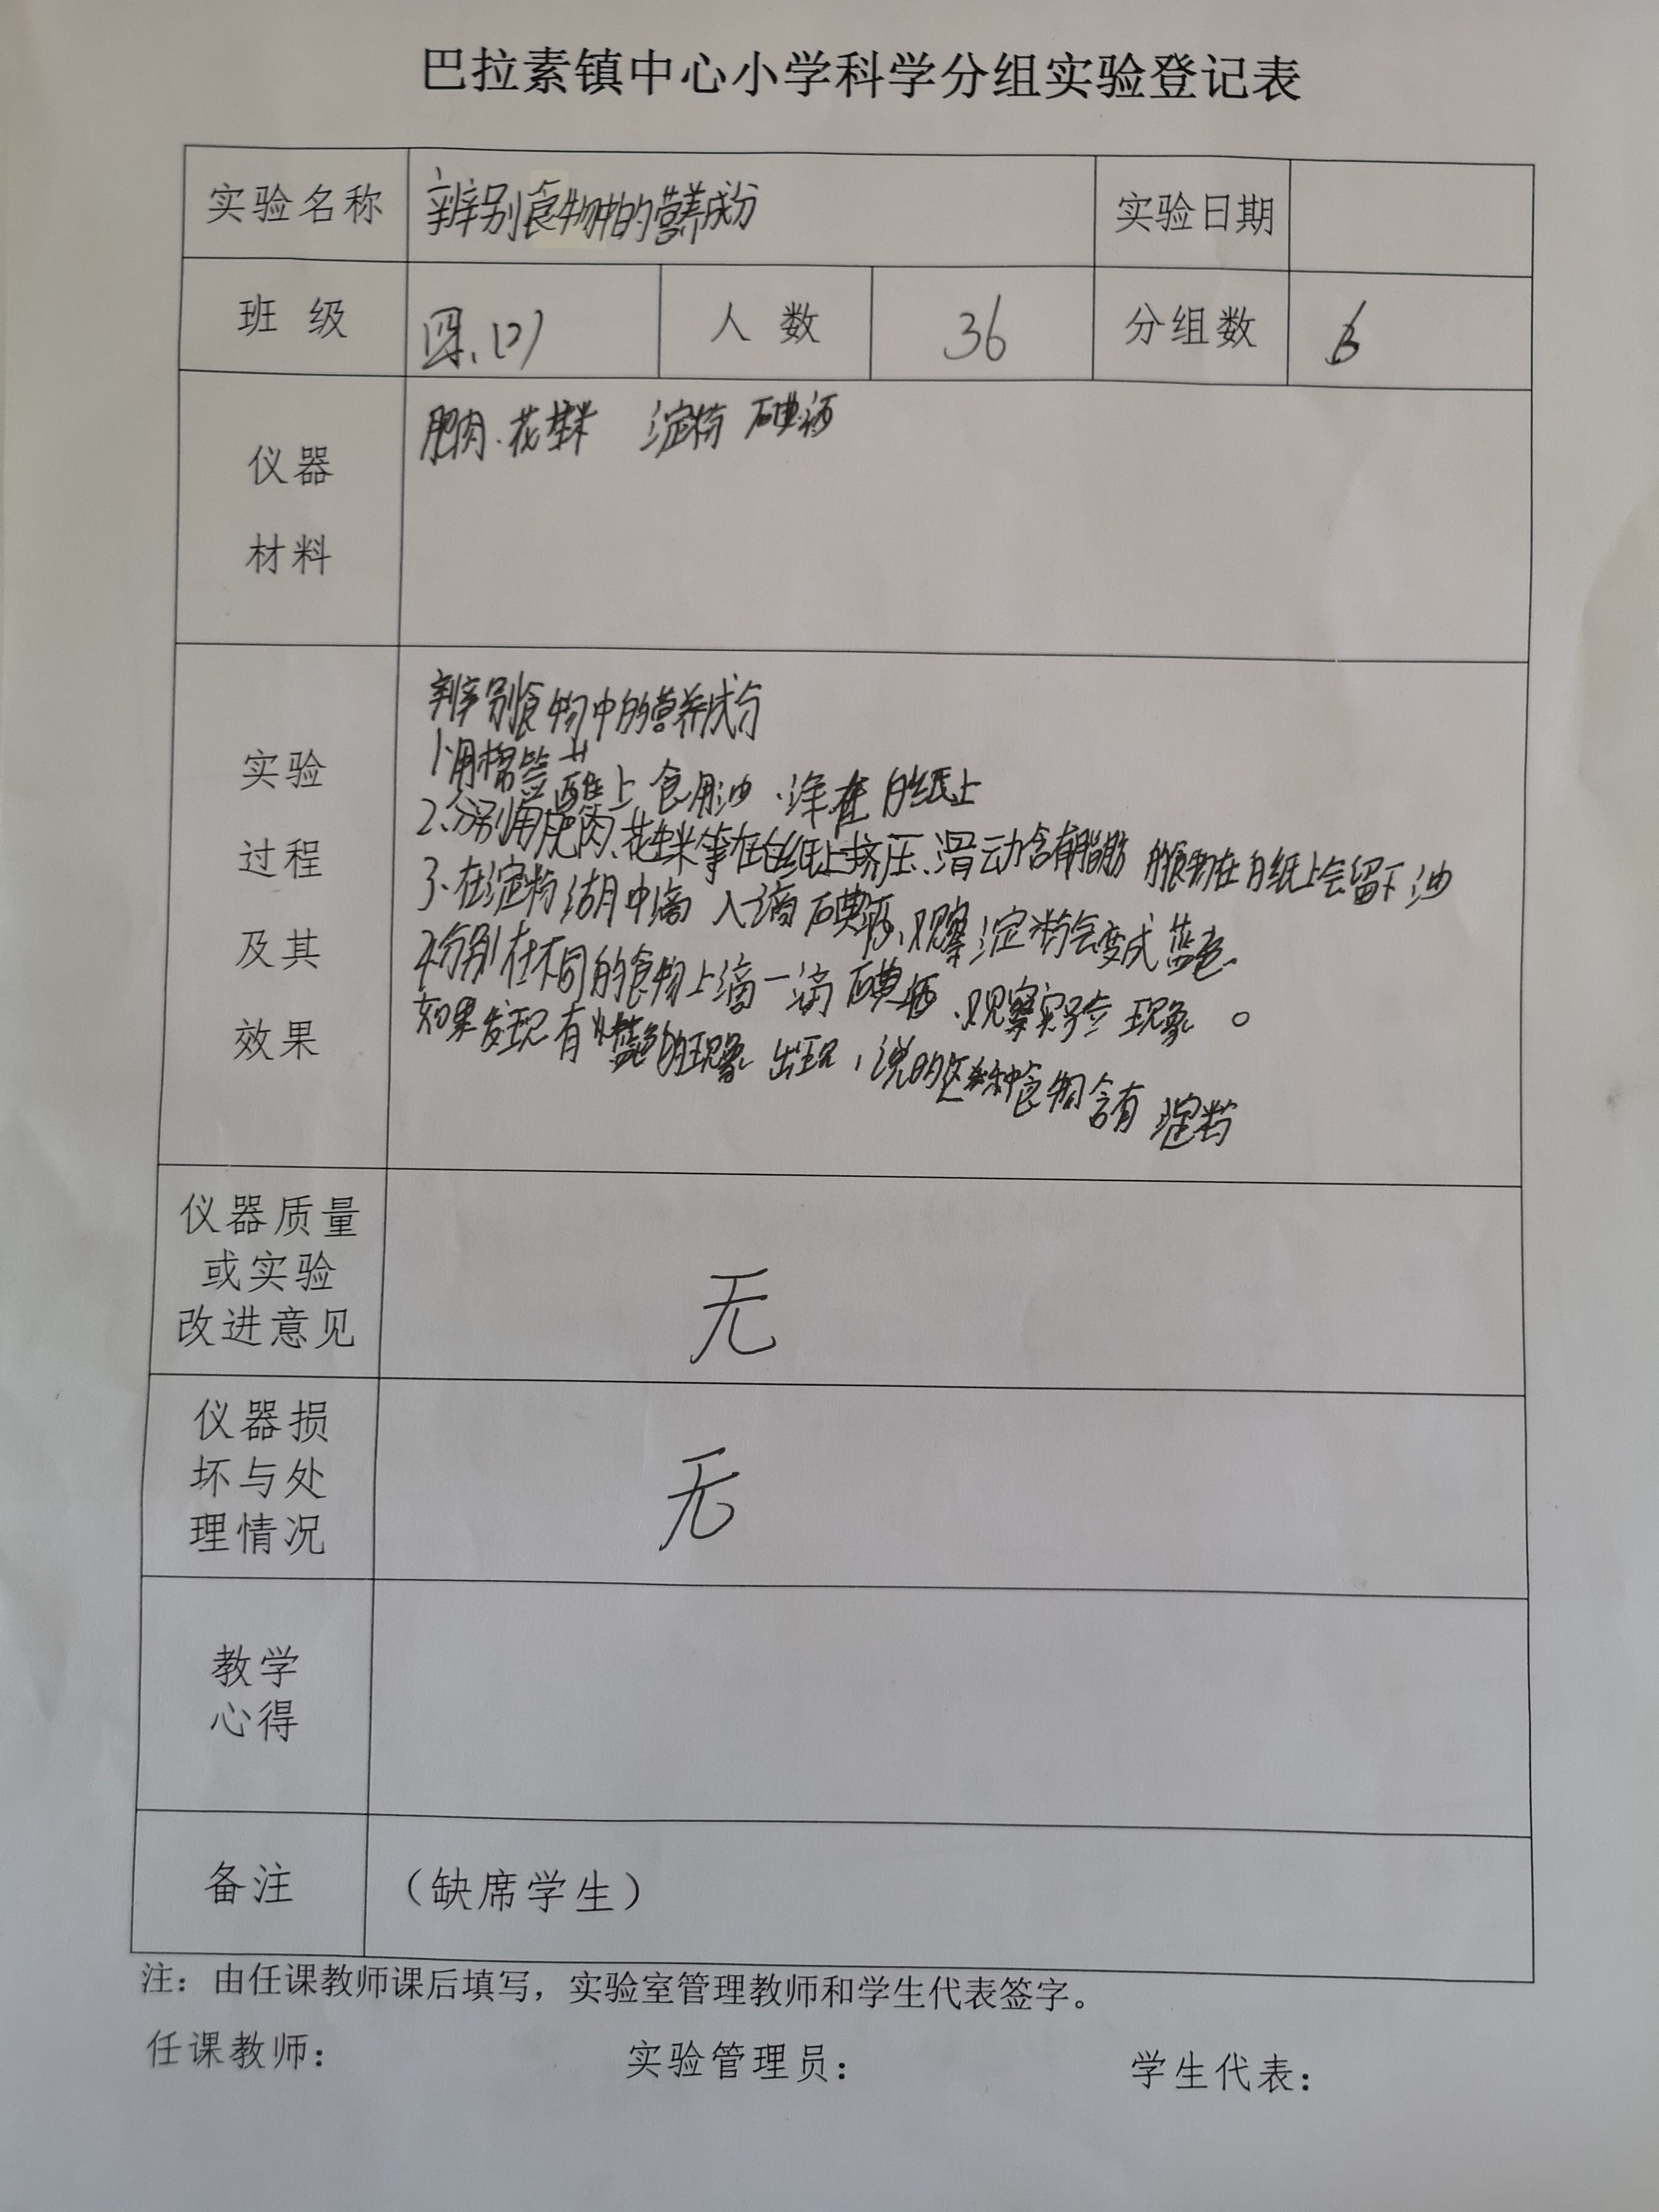 巴拉素镇中心小学科学分组实验登记表
实验名称 辨别食物中的营养成分 实验日期
班 级 四、(2) 人 数 36 分组数 6
仪器
材料
肥肉、花生米 淀粉 碘酒
实验
过程
及其
效果
辨别食物中的营养成分
1、用棉签蘸上食用油、涂在白纸上
2、分别用肥肉、花生米等在白纸上挤压、滑动含有脂肪的食物在白纸上会留下油
3、在淀粉糊中滴入一滴碘酒、观察淀粉会变成蓝色.
4、分别在不同的食物上滴一滴碘酒、观察实验现象。
如果发现有蓝色的现象出现，说明这种食物含有淀粉
仪器质量
或实验
改进意见
无
仪器损
坏与处
理情况
无
教学
心得
备注 （缺席学生）
注：由任课教师课后填写，实验室管理教师和学生代表签字。
任课教师： 实验管理员： 学生代表：